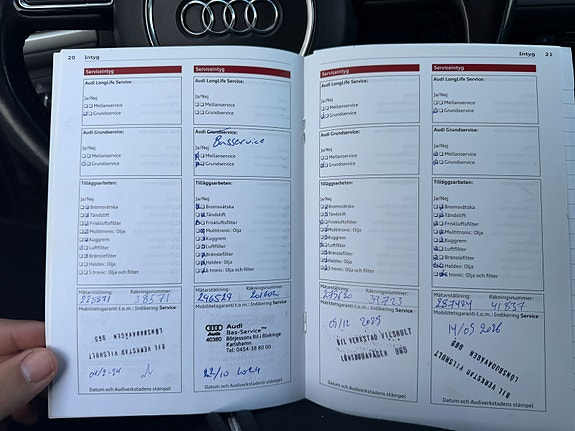 20 Intyg
Serviceintyg
Audi LongLife Service:
Ja/Nej
Mellanservice
Grundservice
Audi Grundservice:
Ja/Nej
Mellanservice
Grundservice
Tilläggsarbeten:
Ja/Nej
Bromsvätska
Tändstift
Friskluftsfilter
Multitronic: Olja
Kuggrem
Luftfilter
Bränslefilter
Haldex: Olja
S tronic: Olja och filter
Mätarställning: Räkningsnummer:
38571
Mobilitetsgaranti t.o.m.: Indikering Service
LÖNSBODAVÄGEN 965
BIL VERKSTAD VILSHULT
Datum och Audiverkstadens stämpel
Serviceintyg
Audi LongLife Service:
Ja/Nej
Mellanservice
Grundservice
Audi Grundservice:
Basservice
Ja/Nej
Mellanservice
Grundservice
Tilläggsarbeten:
Ja/Nej
Bromsvätska
Tändstift
Friskluftsfilter
Multitronic: Olja
Kuggrem
Luftfilter
Bränslefilter
Haldex: Olja
S tronic: Olja och filter
Mätarställning: Räkningsnummer:
246529
Mobilitetsgaranti t.o.m.: Indikering Service
Audi
Bas-Service™
40380 Börjessons Bil i Blekinge
Karlshamn
Tel: 0454-38 80 00
22/10 2024
Datum och Audiverkstadens stämpel
Intyg 21
Serviceintyg
Audi LongLife Service:
Ja/Nej
Mellanservice
Grundservice
Audi Grundservice:
Ja/Nej
Mellanservice
Grundservice
Tilläggsarbeten:
Ja/Nej
Bromsvätska
Tändstift
Friskluftsfilter
Multitronic: Olja
Kuggrem
Luftfilter
Bränslefilter
Haldex: Olja
S tronic: Olja och filter
Mätarställning: Räkningsnummer:
39723
Mobilitetsgaranti t.o.m.: Indikering Service
01/12 2025
BIL VERKSTAD VILSHULT
LÖNSBODAVÄGEN 965
Datum och Audiverkstadens stämpel
Serviceintyg
Audi LongLife Service:
Ja/Nej
Mellanservice
Grundservice
Audi Grundservice:
Ja/Nej
Mellanservice
Grundservice
Tilläggsarbeten:
Ja/Nej
Bromsvätska
Tändstift
Friskluftsfilter
Multitronic: Olja
Kuggrem
Luftfilter
Bränslefilter
Haldex: Olja
S tronic: Olja och filter
Mätarställning: Räkningsnummer:
287484 41837
Mobilitetsgaranti t.o.m.: Indikering Service
BIL VERKSTAD VILSHULT
LÖNSBODAVÄGEN 965
Datum och Audiverkstadens stämpel